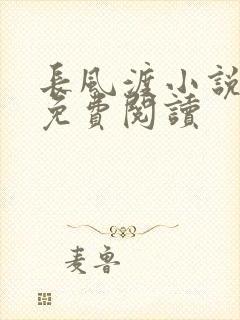 長風渡小說
免費閱讀
麦鲁